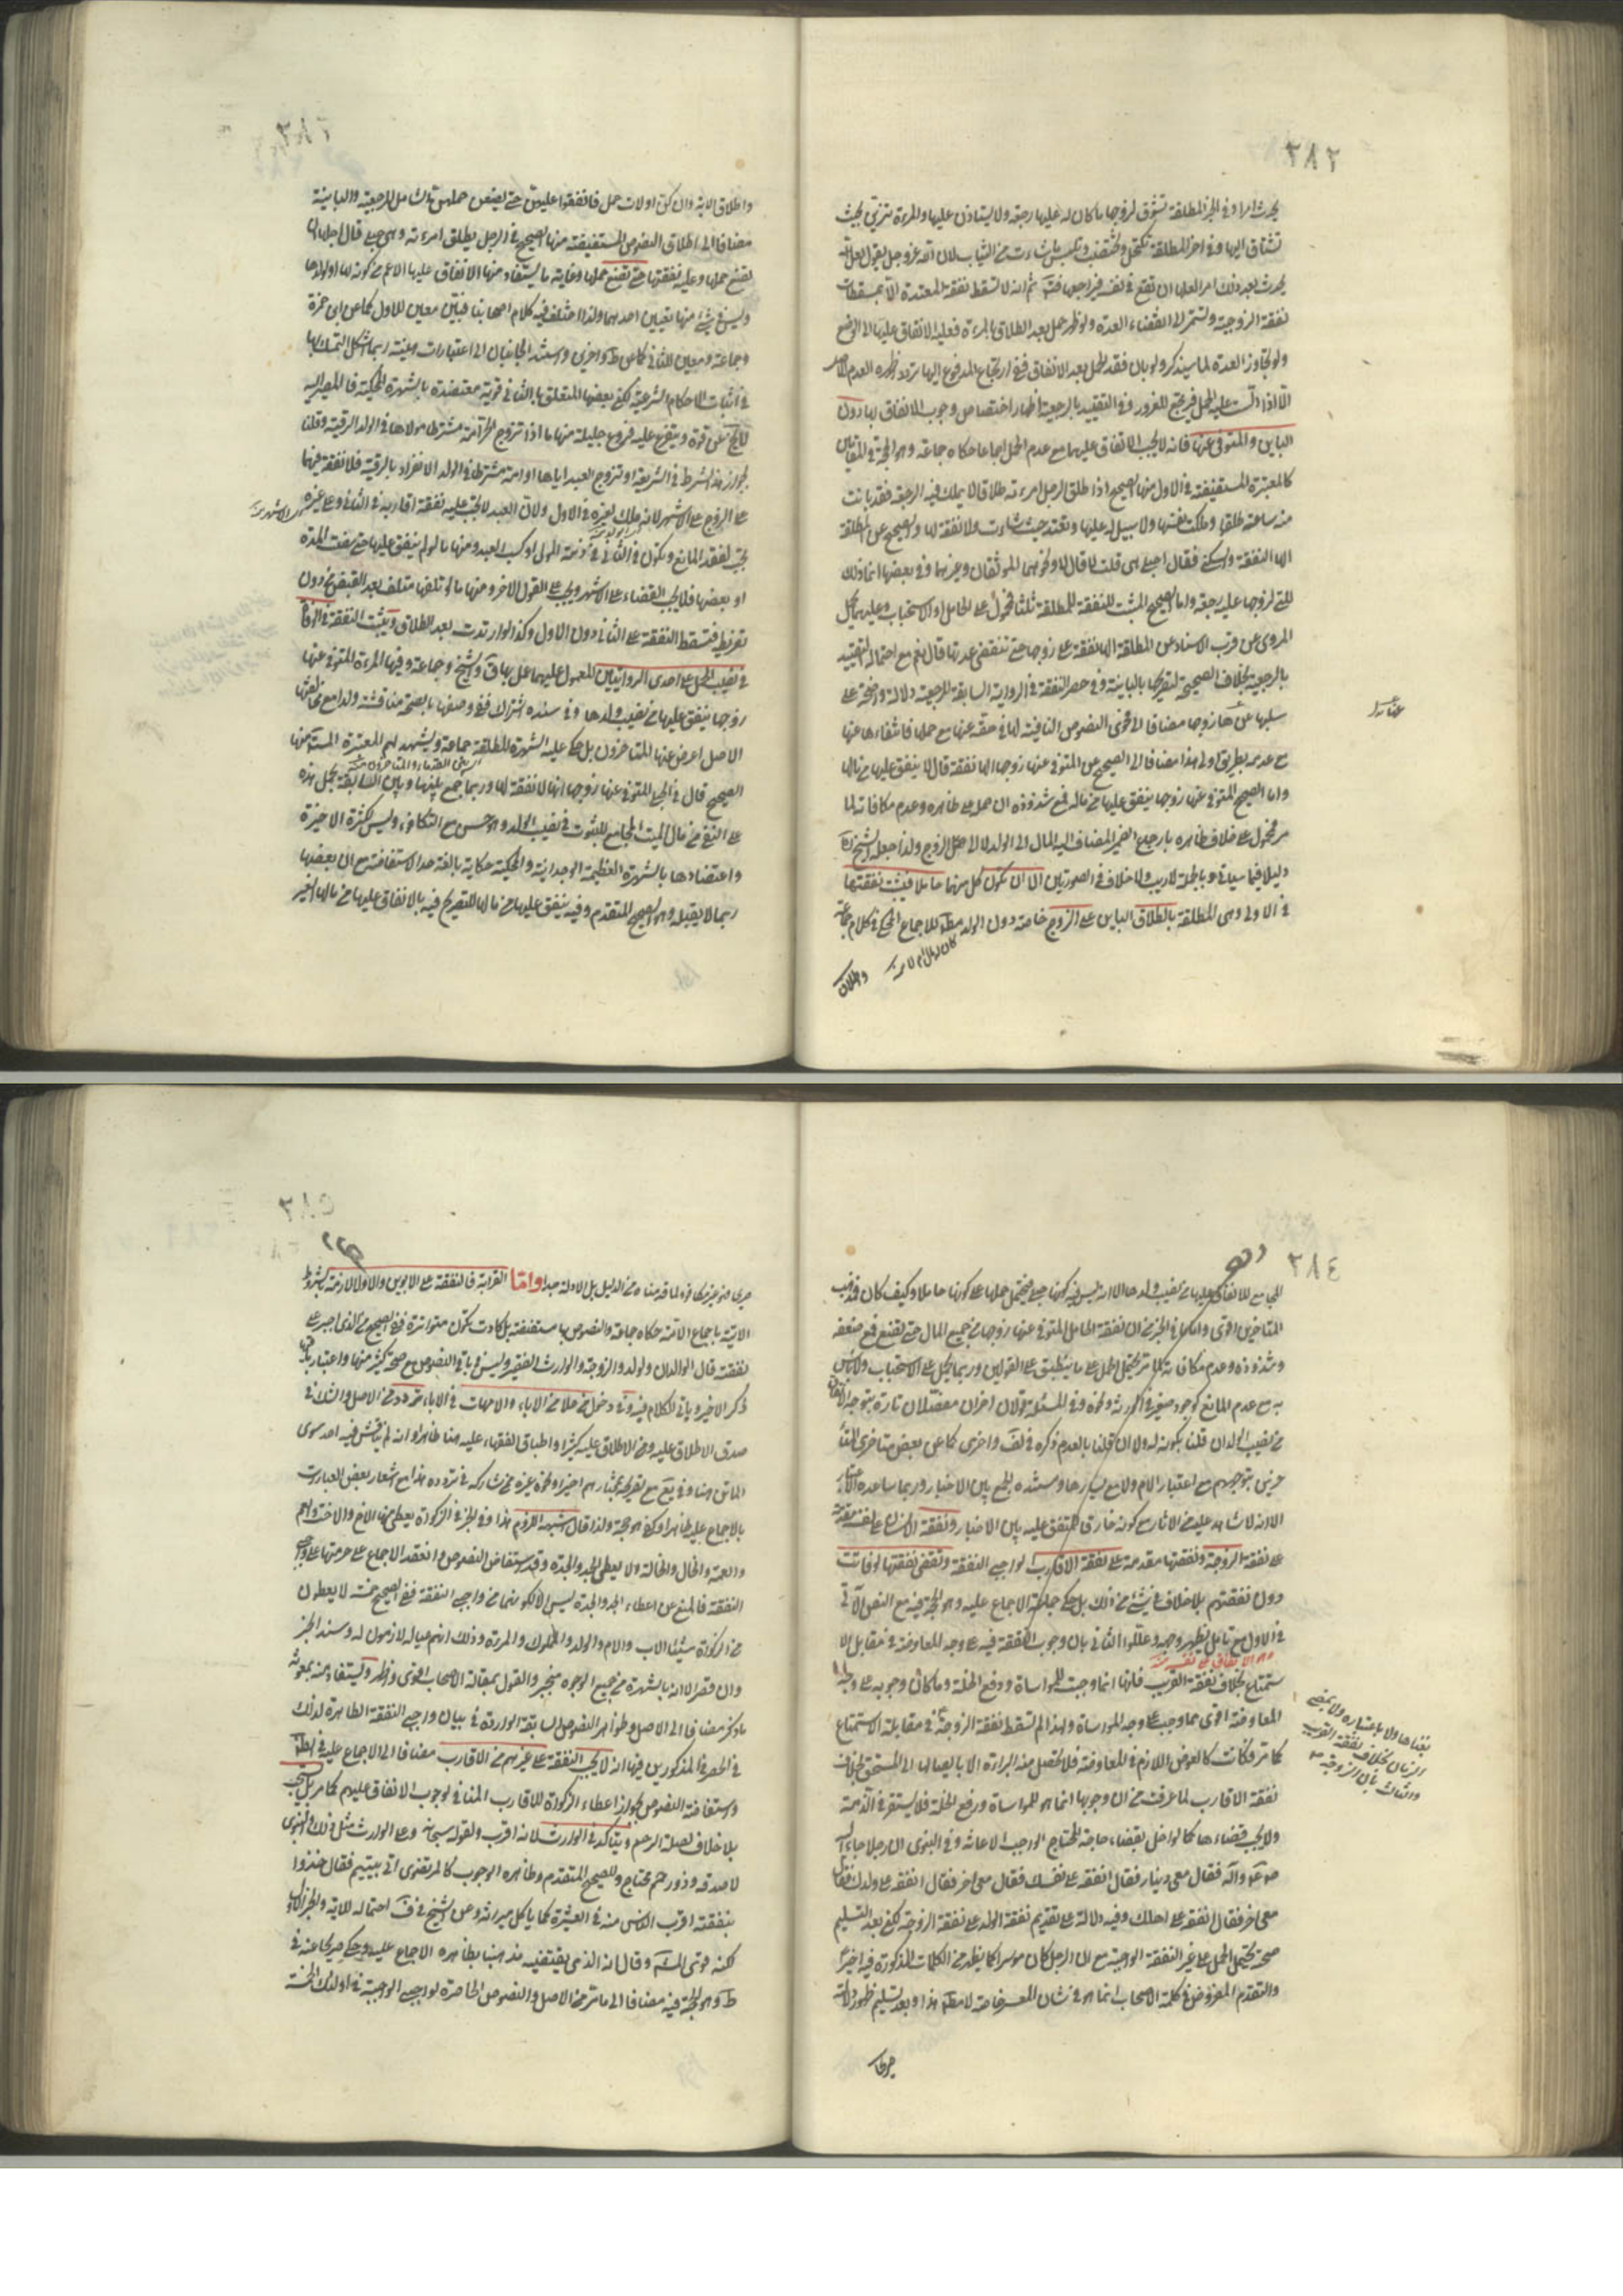 ٣٨٢
يحدث امرا وفي الخبر المطلقة تشوق لزوجها ما كان له عليها رجعة ولا يستاذن عليها والمرءة تتزين بحيث
تشتاق اليها وفي اخر المطلقة تكتحل وتختضب وتلبس ما شاءت من الثياب لان الله عز وجل يقول لعل الله
يحدث بعد ذلك امرا لعلها ان تقع في نفسه فيراجعها ثم انه لا تسقط نفقة المعتدة الا بمسقطات
نفقة الزوجية وتستمر الى انقضاء العدة ولو ظهر حمل بعد الطلاق بالمرءة فعليه الانفاق عليها الى الوضع
ولو تجاوز العدة لما سيذكر ولو بان فقد الحمل بعد الانفاق ففي ارتجاع المدفوع اليها تردد اظهره العدم للاصل
الا اذا دلست عليه الحمل فيرتجع للغرور وفي التقييد بالرجعية اظهار اختصاص وجوب الانفاق بها دون
الباين والمتوفى عنها فانه لا يجب الانفاق عليهما مع عدم الحمل اجماعا حكاه جماعة وهو الحجة في المقامين
كالمعتبرة المستفيضة في الاول منها الصحيح اذا طلق الرجل امرءته طلاقا لا يملك فيه الرجعة فقد بانت
منه ساعة طلقها وملكت نفسها ولا سبيل له عليها وتعتد حيث شاءت ولا نفقة لها والصحيح عن المطلقة
الها النفقة والسكنى فقال احبلى هي قلت لا قال لا ونحوهما الموثقان وغيرهما وفي بعضها انما ذلك
للتي لزوجها عليها رجعة واما الصحيح المثبت للنفقة للمطلقة ثلثا فمحمول على الحامل او الاستحباب وعليهما يحمل
المروي عن قرب الاسناد عن المطلقة الها نفقة على زوجها حتى تنقضي عدتها قال نعم مع احتماله التقييد
بالرجعية بخلاف الصحيحة لتصريحها بالباينة وفي حصر النفقة في الرواية السابقة للرجعية دلالة واضحة على
سلبها عن المتوفى عنها زوجها مضافا الى فحوى النصوص النافية لها في حقه عنها مع حملها فانتفاءها عنها
مع عدمه بطريق اولى هذا مضافا الى الصحيح عن المتوفى عنها زوجها الها نفقة قال لا ينفق عليها من مالها
واما الصحيح المتوفى عنها زوجها ينفق عليها من ماله فمع شذوذه ان حمل على ظاهره وعدم مكافاته لما
مر محمول على خلاف ظاهره بارجاع الضمير المضاف اليه المال الى الولد لا الى الزوج ولذا جعله الشيخ
دليلا فيما سياتي وبالجملة لا ريب ولا خلاف في الصورتين الا ان تكون كل منهما حاملا فيثبت نفقتها
في الاولى وهي المطلقة بالطلاق الباين على الزوج خاصة دون الولد مطلقا للاجماع المحكي في كلام جماعة
واطلاق
٣٨٣
واطلاق الاية وان كن اولات حمل فانفقوا عليهن حتى يضعن حملهن شامل للرجعية والباينة
مضافا الى اطلاق النصوص المستفيضة منها الصحيح في الرجل يطلق امرءته وهي حبلى قال اجلها ان
تضع حملها وعليه نفقتها حتى تضع حملها وغاية ما يستفاد منها الانفاق عليها الاعم من كونه لها او لولدها
وليس في شيء منها تعيين احدهما ولذا اختلف فيه كلام اصحابنا فبين معين للاول كما عن ابن حمزة
وجماعة ومعين للثاني كما عن ط واخرى واستند الجانبان الى اعتبارات هينة ربما اشكل التمسك بها
في اثبات الاحكام الشرعية لكن بعضها المتعلق بالثاني قوية معتضدة بالشهرة المحكية فالمصير اليه
لا يخ عن قوة ويتفرع عليه فروع جليلة منها ما اذا تزوج الحر امة مشترط مولاها في الولد الرقية وقلنا
بجواز هذا الشرط في الشريعة او تزوج العبد اياها او امة مشترط في الولد الانفراد بالرقية فلا نفقة فيهما
على الزوج على الاشهر لانه ملك لغيره في الاول ولان العبد لا يجب عليه نفقة اقاربه في الثاني وعلى غير الاشهر
تجب لفقد المانع وتكون في الثاني في ذمة المولى او كسب العبد ومنها ما لو لم ينفق عليها حتى مضت المدة
او بعضها فلا يجب القضاء على الاشهر ويجب على القول الاخر ومنها ما لو تلفها متلف بعد القبض من دون
تفريط فتسقط النفقة على الثاني دون الاول وكذا لو ارتدت بعد الطلاق ويثبت النفقة في الوفاة
في نصيب الحمل على احدى الروايتين المعمول عليهما عمل بها ق والشيخ وجماعة وفيها المرءة المتوفى عنها
زوجها ينفق عليها من نصيب ولدها وفي سنده اشتراك ففي وصفها بالصحة مناقشة ولذا مع مخالفتها
الاصل اعرض عنها المتاخرون بل حكي عليه الشهرة المطلقة جماعة ويشهد لهم المعتبرة المستفيضة منها
الصحيح قال في الحبلى المتوفى عنها زوجها انها لا نفقة لها وربما جمع بينها وبين السابقة بحمل هذه
على النفي من مال الميت المجامع للثبوت في نصيب الولد وهو حسن مع التكافؤ وليس لكثرة الاخيرة
واعتضادها بالشهرة العظيمة الوجدانية والمحكية حكاية بالغة حد الاستفاضة مع ان بعضها
ربما لا يقبله وهو الصحيح المتقدم وفيه ينفق عليها من مالها للتصريح فيه بالانفاق عليها من مالها الغير
٣٨٤
المجامع للانفاق عليها من نصيب ولدها الا انه ليس فيه كونها حبلى فيحتمل حملها على كونها حاملا وكيف كان فمذهب
المتاخرين اقوى واما ما في الخبر من ان نفقة الحامل المتوفى عنها زوجها من جميع المال حتى تضع فمع ضعفه
وشذوذه وعدم مكافاته لما مر يحتمل الحمل على ما ينطبق على القولين وربما يحمل على الاستحباب ولا باس
به مع عدم المانع كوجود صغير في الورثة ونحوه وفي المسئلة قولان اخران مفصلان تارة بتوجه الانفاق
من نصيب الولد ان قلنا بكونه له ولا ان قلنا بالعدم ذكره في لف واخرى كما عن بعض متاخري المتا
خرين بتوجههم مع اعتبار الام ولا مع يسارها ومستنده الجمع بين الاخبار وربما ساعده الاعتبار
الا انه لا شاهد عليه من الاثار مع كونه خارقا للمتفق عليه بين الاخبار ونفقة الانسان على نفسه مقدمة
على نفقة الزوجة ونفقتها مقدمة على نفقة الاقارب لواجبي النفقة وتقضى نفقتها لو فاتت
دون نفقتهم بلا خلاف في شيء من ذلك بل حكى جماعة الاجماع عليه وهو الحجة فيه مع النص الاتي
في الاول مع تامل يظهر وجهه وعللوا الثاني بان وجوب النفقة فيه على وجه المعاوضة في مقابل الا
ستمتاع بخلاف نفقة القريب فانها انما وجبت للمواساة ودفع الخلة وما كان وجوبه على وجه
المعاوضة اقوى مما وجب على وجه المواساة ولهذا لم تسقط نفقة الزوجة في مقابلة الاستمتاع
كما مر فكانت كالعوض اللازم في المعاوضة فلا تحصل منه البراءة الا بايصالها الى المستحق بخلاف
نفقة الاقارب لما عرفت من ان وجوبها انما هو للمواساة ورفع الخلة فلا يستقر في الذمة
ولا يجب قضاءها كما لو اخل بقضاء حاجة المحتاج الواجب الاعانة وفي النبوي ان رجلا جاء الى
ص وآله فقال معي دينار فقال انفقه على نفسك فقال معي اخر فقال انفقه على ولدك فقال
معي اخر فقال انفقه على اهلك وفيه دلالة على تقديم نفقة الولد على نفقة الزوجة لكن بعد التسليم
صحة يحتمل الحمل على غير النفقة الواجبة مع ان الرجل كان موسرا كما يظهر من الكلمات المذكورة فيه اخيرا
والتقدم المفروض في كلمة الاصحاب انما هو في شان المعسر خاصة لا مطلقا هذا وبعد تسليم ظهور دلالة
صريحا
بقضاها اولا باعتباره ولا بمضي
الزمان بخلاف نفقة القريب
والثالث بان الزوجة
٣٨٥
صريحا غير مكافؤ لما قدمناه من الدليل بل الادلة جدا واما القرابة فالنفقة على الابوين والاولاد لازمة بشروط
الاتية باجماع الامة حكاه جماعة والنصوص بها مستفيضة بل كادت تكون متواترة ففي الصحيح من الذي اجبر على
نفقته قال الوالدان والولد والزوجة والوارث الصغير وليس في باقي النصوص مع صحة كثير منها واعتبار باقي
ذكر الاخير وياتي الكلام فيه وفي دخول من علا من الاباء والامهات في الاباء تردد من الاصل والشك في
صدق الاطلاق عليه ومن الاطلاق عليه كثيرا واطباق الفقهاء عليه هنا ظاهرا وان لم يناقش فيه احد سوى
الماتن هنا وفي يع مع تصريحه بمختارهم اخيرا ونحوه غيره ممن شاركه في تردده هذا مع اشعار بعض العبارات
بالاجماع عليه ظاهرا وكفى هو حجة ولذا قال اشبهه اللزوم هذا وفي الخبر في الزكوة يعطى منها الاخ والاخت والعم
والعمة والخال والخالة ولا يعطى الجد والجدة وقد استفاض النصوص وانعقد الاجماع على حرمتها على واجبي
النفقة فالمنع عن اعطاء الجد والجدة ليس الا لكونهما من واجبي النفقة ففي الصحيح خمسة لا يعطون
من الزكوة شيئا الاب والام والولد والمملوك والمرءة وذلك انهم عياله لازمون له وسند الخبر
وان قصر الا انه بالشهرة من جميع الوجوه منجبر والقول بمقالة الاصحاب اقوى واظهر ويستفاد منه بمعونة
ما ذكر مضافا الى الاصل وظواهر النصوص السابقة الواردة في بيان واجبي النفقة الظاهرة لذلك
في الحصر في المذكورين فيها انه لا يجب النفقة على غيرهم من الاقارب مضافا الى الاجماع عليه في الظاهر
واستفاضة النصوص بجواز اعطاء الزكوة للاقارب المنافي لوجوب الانفاق عليهم كما مر بل يستحب
بلا خلاف لصلة الرحم ويتاكد في الوارث لانه اقرب ولقوله سبحانه وعلى الوارث مثل ذلك وفي النبوي
لا صدقة وذو رحم محتاج والصحيح المتقدم وظاهره الوجوب كالمرتضوي اتي بيتيم فقال خذوا
بنفقته اقرب الناس منه في العشيرة كما ياكل ميراثه وعن الشيخ في ف احتماله للاية والخبر الاول
لكنه قوى المش وقال انه الذي يقتضيه مذهبنا بظاهره الاجماع عليه وحكي صريحا عنه في
ط وهو الحجة فيه مضافا الى ما مر من الاصل والنصوص الحاصرة لواجبي الواجبة في اولئك الخمسة